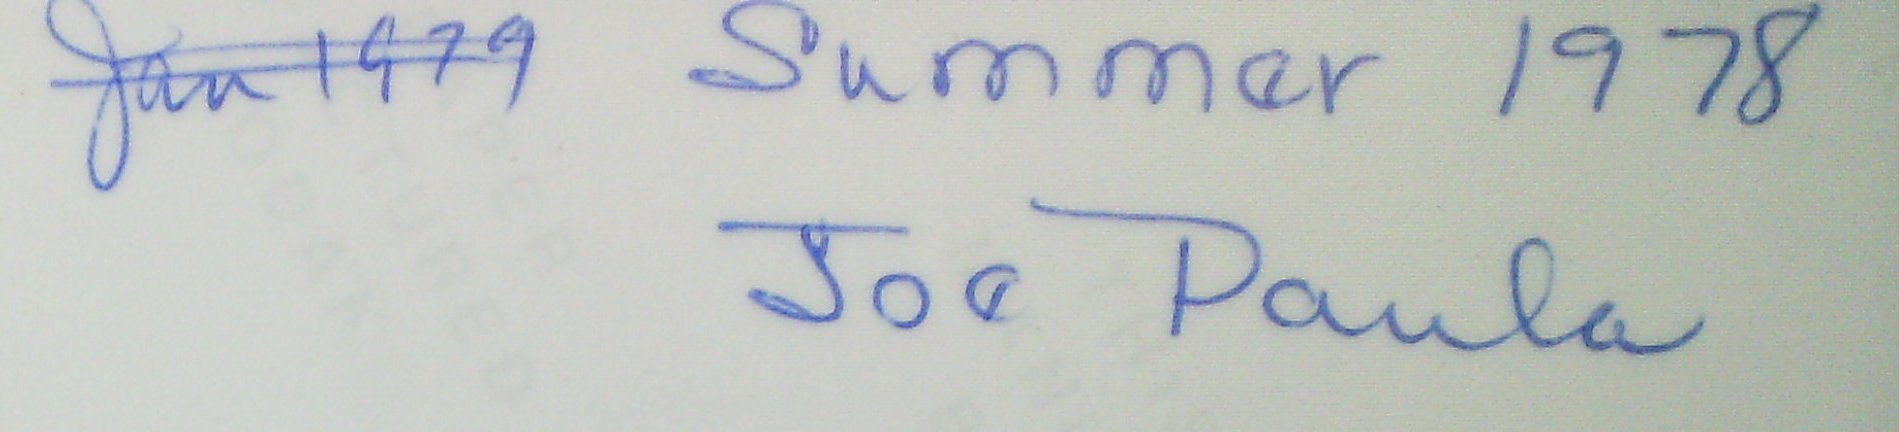 Jan 1979 Summer 1978
Joe Paula